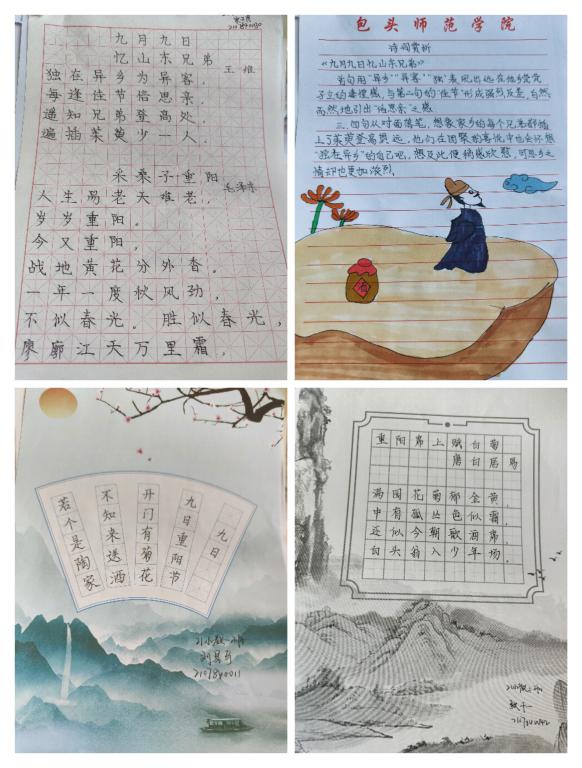 九月九日
忆山东兄弟
王维
独在异乡为异客,
每逢佳节倍思亲.
遥知兄弟登高处,
遍插茱萸少一人.
采桑子·重阳
毛泽东
人生易老天难老,
岁岁重阳。
今又重阳,
战地黄花分外香。
一年一度秋风劲,
不似春光。胜似春光,
廖廓江天万里霜,
包头师范学院
诗词赏析
《九月九日忆山东兄弟》
首句用"异乡""异客""独"表现出远在他乡茕茕
子立的凄惶感,与第二句的"佳节"形成强烈反差,自然
而然地引出"倍思亲"之感
三、四句从对面落笔,想象家乡的每个兄弟都插
上了茱萸登高望远,他们在团聚的喜悦中也会怀想
"独在异乡"的自己吧,想及此便稍感欣慰,可思乡之
情却也更加浓烈.
酒
九日
九日重阳节
开门有菊花
不知来送酒
若个是陶家
21小教一班
重阳席上赋白菊
唐白居易
满园花菊郁金黄,
中有孤丛色似霜.
还似今朝歌酒席,
白头翁入少年场.